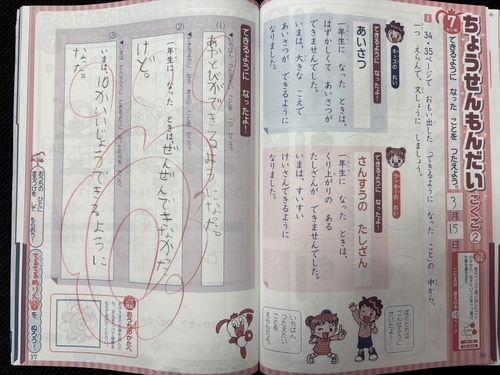 ちょうせんもんだい
こくご②
7
できるように なった ことを つたえよう。
3月15日
1 34・35ページで おもい出した 「できるように なった こと」の 中から、
一つ えらんで、文しょうに しましょう。
できるように なったよ!
キッズの れい
あいさつ
一年生に なった ときは、
はずかしくて あいさつが
できませんでした。
いまは、大きな こえで
あいさつが できるように
なりました。
できるように なったよ!
ラッキーの れい
さんすうの たしざん
一年生に なった ときは、
くり上がりの ある
たしざんが できませんでした。
いまは、すいすい
けいさんできるように
なりました。
ぼくたちは
いちばん
つたえたい
ことを
えらんだよ。
36
できるように なったよ!
(1)
あやとびができるようになった。
(2)
一年生になった ときは、ぜんぜんできなかった
けど。
(3)
いまは、10かいいじょうできるように
なった。
おうちの ひとに
まるつけを して もらおう!
を ぬろう!
おうちのかたへ
37